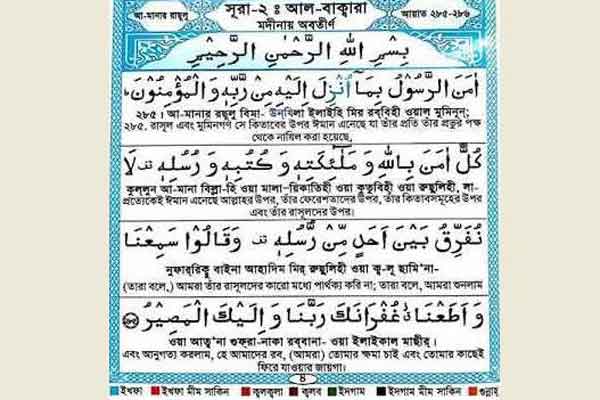 আ-মানার রাছুলু
সূরা-২ ঃ আল-বাক্বারা
মদীনায় অবতীর্ণ
আয়াত ২৮৫-২৮৬
بِسْمِ اللهِ الرَّحْمٰنِ الرَّحِيْمِ
اٰمَنَ الرَّسُوْلُ بِمَآ اُنْزِلَ اِلَيْهِ مِنْ رَّبِّهٖ وَالْمُؤْمِنُوْنَ ط
২৮৫। আ-মানার রছূলু বিমা- উনযিলা ইলাইহি মির রব্বিহী ওয়াল মুমিনূন;
২৮৫. রাসূল এবং মুমিনগণ সে কিতাবের উপর ঈমান এনেছে যা তাঁর প্রতি তাঁর প্রভুর পক্ষ
থেকে নাযিল করা হয়েছে,
كُلٌّ اٰمَنَ بِاللهِ وَ مَلٰٓئِكَتِهٖ وَ كُتُبِهٖ وَ رُسُلِهٖ قف لَا
কুল্লুন আ-মানা বিল্লা-হি ওয়া মালা-য়িকাতিহী ওয়া কুতুবিহী ওয়া রুছুলিহী, লা-
প্রত্যেকেই ঈমান এনেছে আল্লাহর উপর, তাঁর ফেরেশতাদের উপর, তাঁর কিতাবসমূহের উপর
এবং তাঁর রাসূলদের উপর।
نُفَرِّقُ بَيْنَ اَحَدٍ مِّنْ رُّسُلِهٖ قف وَقَالُوْا سَمِعْنَا
নুফাররিক্বু বাইনা আহাদিম মির্ রুছুলিহী ওয়া ক্ব-লূ ছামি'না-
(তারা বলে,) আমরা তাঁর রাসূলদের কারো মধ্যে পার্থক্য করি না; তারা বলে, আমরা শুনলাম
وَ اَطَعْنَا ز غُفْرَانَكَ رَبَّنَا وَ اِلَيْكَ الْمَصِيْرُ
ওয়া আত্ব'না গুফরা-নাকা রব্বানা- ওয়া ইলাইকাল মাছীর্।
এবং আনুগত্য করলাম, হে আমাদের রব, (আমরা) তোমার ক্ষমা চাই এবং তোমার কাছেই
ফিরে যাওয়ার জায়গা।
৪
ইখফা ইখফা মীম সাকিন ক্বলক্বলা ক্বলব ইদগাম ইদগাম মীম সাকিন গুন্নাহ্